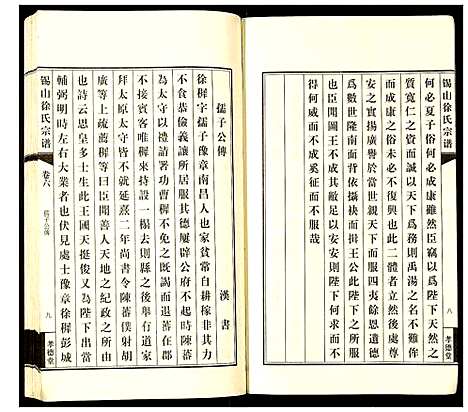 何必夏子俗何必成康雖然臣竊以爲陛下天然之
質寬仁之資而誠以天下爲務則禹湯之名不難侔
而成康之俗未必不復興也此二體者立然後處尊
安之實揚廣譽於當世親天下而服四夷餘恩遺德
爲數世隆南面背依攝袂而揖王公此陛下之所服
也臣聞圖王不成其敝足以安安則陛下何求而不
得何威而不成奚征而不服哉
錫山徐氏宗譜
八
孝德堂
孺子公傳
漢書
徐穉字孺子豫章南昌人也家貧常自耕稼非其力
不食恭儉義讓所居服其德屢辟公府不起時陳蕃
爲太守以禮請署功曹穉不免之既謁而退蕃在郡
不接賓客唯穉來特設一榻去則縣之後舉有道家
拜太原太守不就延熹二年尚書令陳蕃僕射胡
廣等上疏薦穉等曰臣聞善人天地之紀政之所由
也詩云思皇多士生此王國天挺俊乂爲陛下出當
輔弼明時左右大業者也伏見處士豫章徐穉彭城
錫山徐氏宗譜
卷六
孺子公傳
九
孝德堂